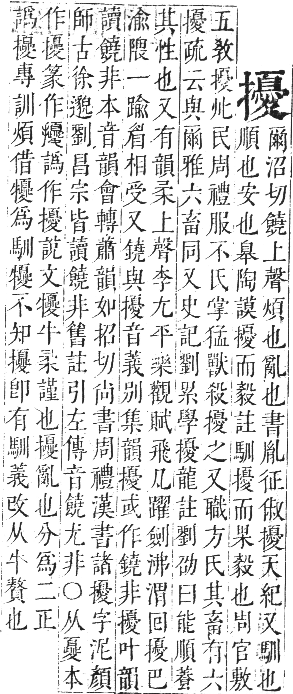 擾
爾沼切饒上聲煩也亂也書胤征俶擾天紀又馴也
順也安也皋陶謨擾而毅註馴擾而果毅也周官敷
五教擾兆民周禮服不氏掌猛獸殺擾之又職方氏其畜有六
擾疏云與爾雅六畜同又史記劉累學擾龍註劉劭曰能順養
其性也又有韻柔上聲李尤平樂觀賦飛丸躍劍沸渭回擾巴
渝隈一踰肩相受又饒與擾音義別集韻擾或作饒非擾叶韻
讀饒非本音韻會轉蕭韻如招切尚書周禮漢書諸擾字泥顏
師古徐邈劉昌宗皆讀饒非舊註引左傳音饒尤非○从夒本
作擾篆作譌作擾說文犪牛柔謹也擾亂也分爲二正
譌擾專訓煩借犪爲馴犪不知擾卽有馴義改从牛贅也